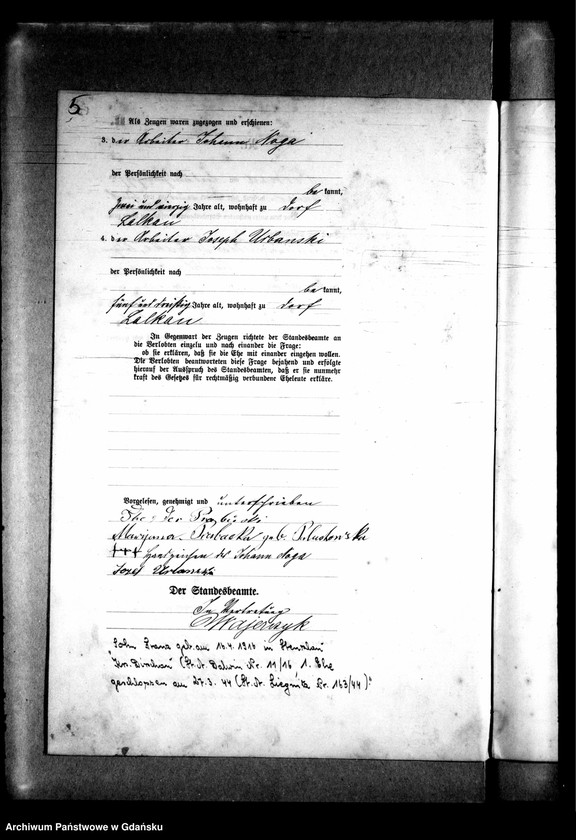 5
Als Zeugen waren zugezogen und erschienen:
3. der Arbeiter Johann Noga
der Persönlichkeit nach
be kannt,
zwei und vierzig Jahre alt, wohnhaft zu Dorf
Lalkau
4. der Arbeiter Joseph Urbanski
der Persönlichkeit nach
be kannt,
fünf und dreißig Jahre alt, wohnhaft zu Dorf
Lalkau
In Gegenwart der Zeugen richtete der Standesbeamte an
die Verlobten einzeln und nach einander die Frage:
ob sie erklären, daß sie die Ehe mit einander eingehen wollen.
Die Verlobten beantworteten diese Frage bejahend und erfolgte
hierauf der Ausspruch des Standesbeamten, daß er sie nunmehr
kraft des Gesetzes für rechtmäßig verbundene Eheleute erkläre.
Vorgelesen, genehmigt und unterschrieben
Marijana geb.
+++ Handzeichen des Johann Noga
Józef Urbanski
Der Standesbeamte.
In Vertretung
Majewski
"Sohn Franz geb. am 16.4.1916 in
Kr. Dirschau (St. A. Nr. 11/16 1. Ehe
geschlossen am 27.3.44 (St. A. Liegnitz Nr. 163/44)"
Archiwum Państwowe w Gdańsku